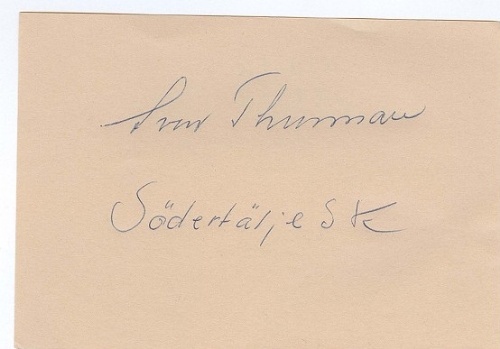 Sven Thunman
Södertälje SK